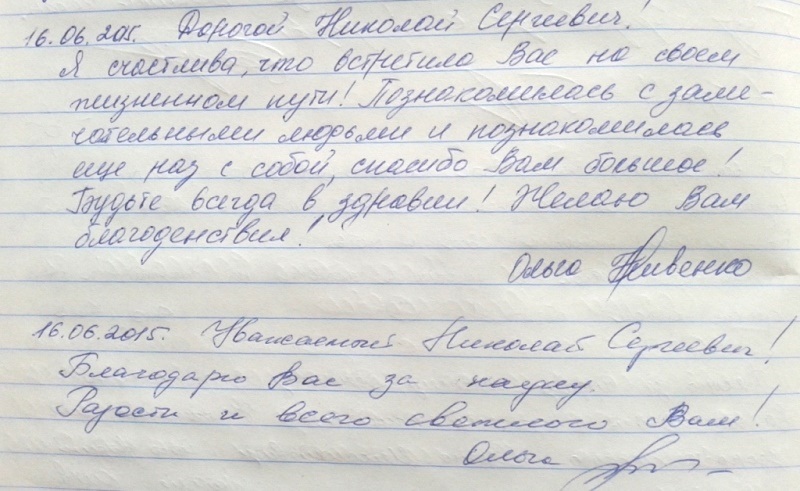 16.06.2015. Дорогой Николай Сергиевич!
Я счастлива, что встретила Вас на своем
жизненном пути! Познакомилась с заме-
чательными людьми и познакомилась
еще раз с собой, спасибо Вам большое!
Будьте всегда в здравии! Желаю Вам
благоденствия!
Ольга
16.06.2015. Уважаемый Николай Сергиевич!
Благодарю Вас за науку.
Радости и всего светлого Вам!
Ольга